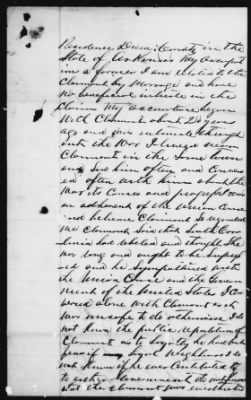 Residence Drew County in the
State of Arkansas My occupat
ion a farmer I am related to the
Claimant by Marriage and have
no beneficial interest in the
Claim My acquaintance began
With Claimant about 20 years
ago and was intimate through
out the War I lived near
Claimant in the same town
and saw him often and convers
ed often with him about the
War its Causes and progress I was
an adherent of the Union Cause
and believe Claimant so regarded
me Claimant said that South Caro
lina had rebelled and thought she
was wrong and ought to be
and he sympathised with
the Union Cause and the Govern
ment of the United States I
alone with Claimant each
was unsafe to do otherwise I do
not know the public reputation of
Claimant as to loyalty he had but
few if loyal neighbours I do
not know if he ever contributed to
to either Government do
that the Claimant ever